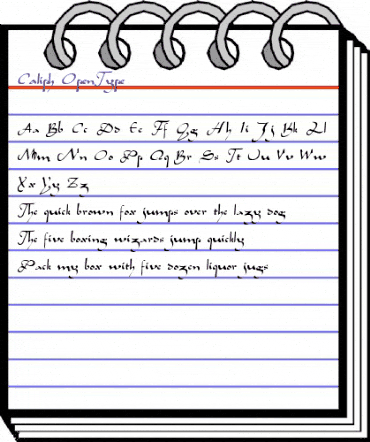 Caliph OpenType
Aa Bb Cc Dd Ee Ff Gg Hh Ii Jj Kk Ll
Mm Nn Oo Pp Qq Rr Ss Tt Uu Vv Ww
Xx Yy Zz
The quick brown fox jumps over the lazy dog
The five boxing wizards jump quickly
Pack my box with five dozen liquor jugs